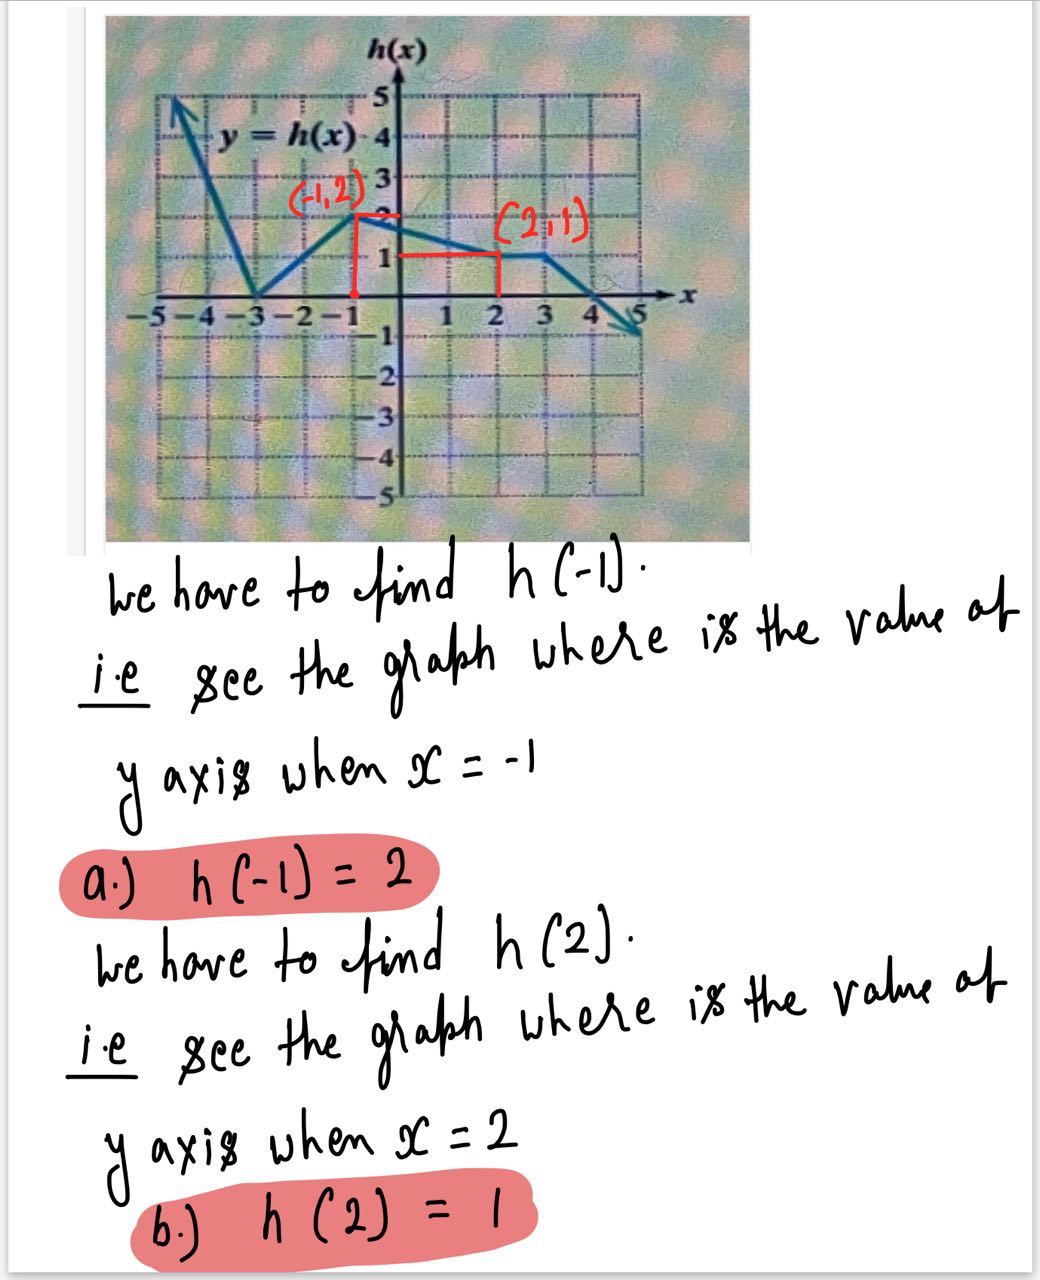 h(x)
5
y = h(x) 4
(-1,2) 3
2 (2,1)
1
x
-5 -4 -3 -2 -1 1 2 3 4 5
-1
-2
-3
-4
-5
We have to find h(-1).
i.e see the graph where is the value of
y axis when x = -1
a.) h(-1) = 2
We have to find h(2).
i.e see the graph where is the value of
y axis when x = 2
b.) h(2) = 1